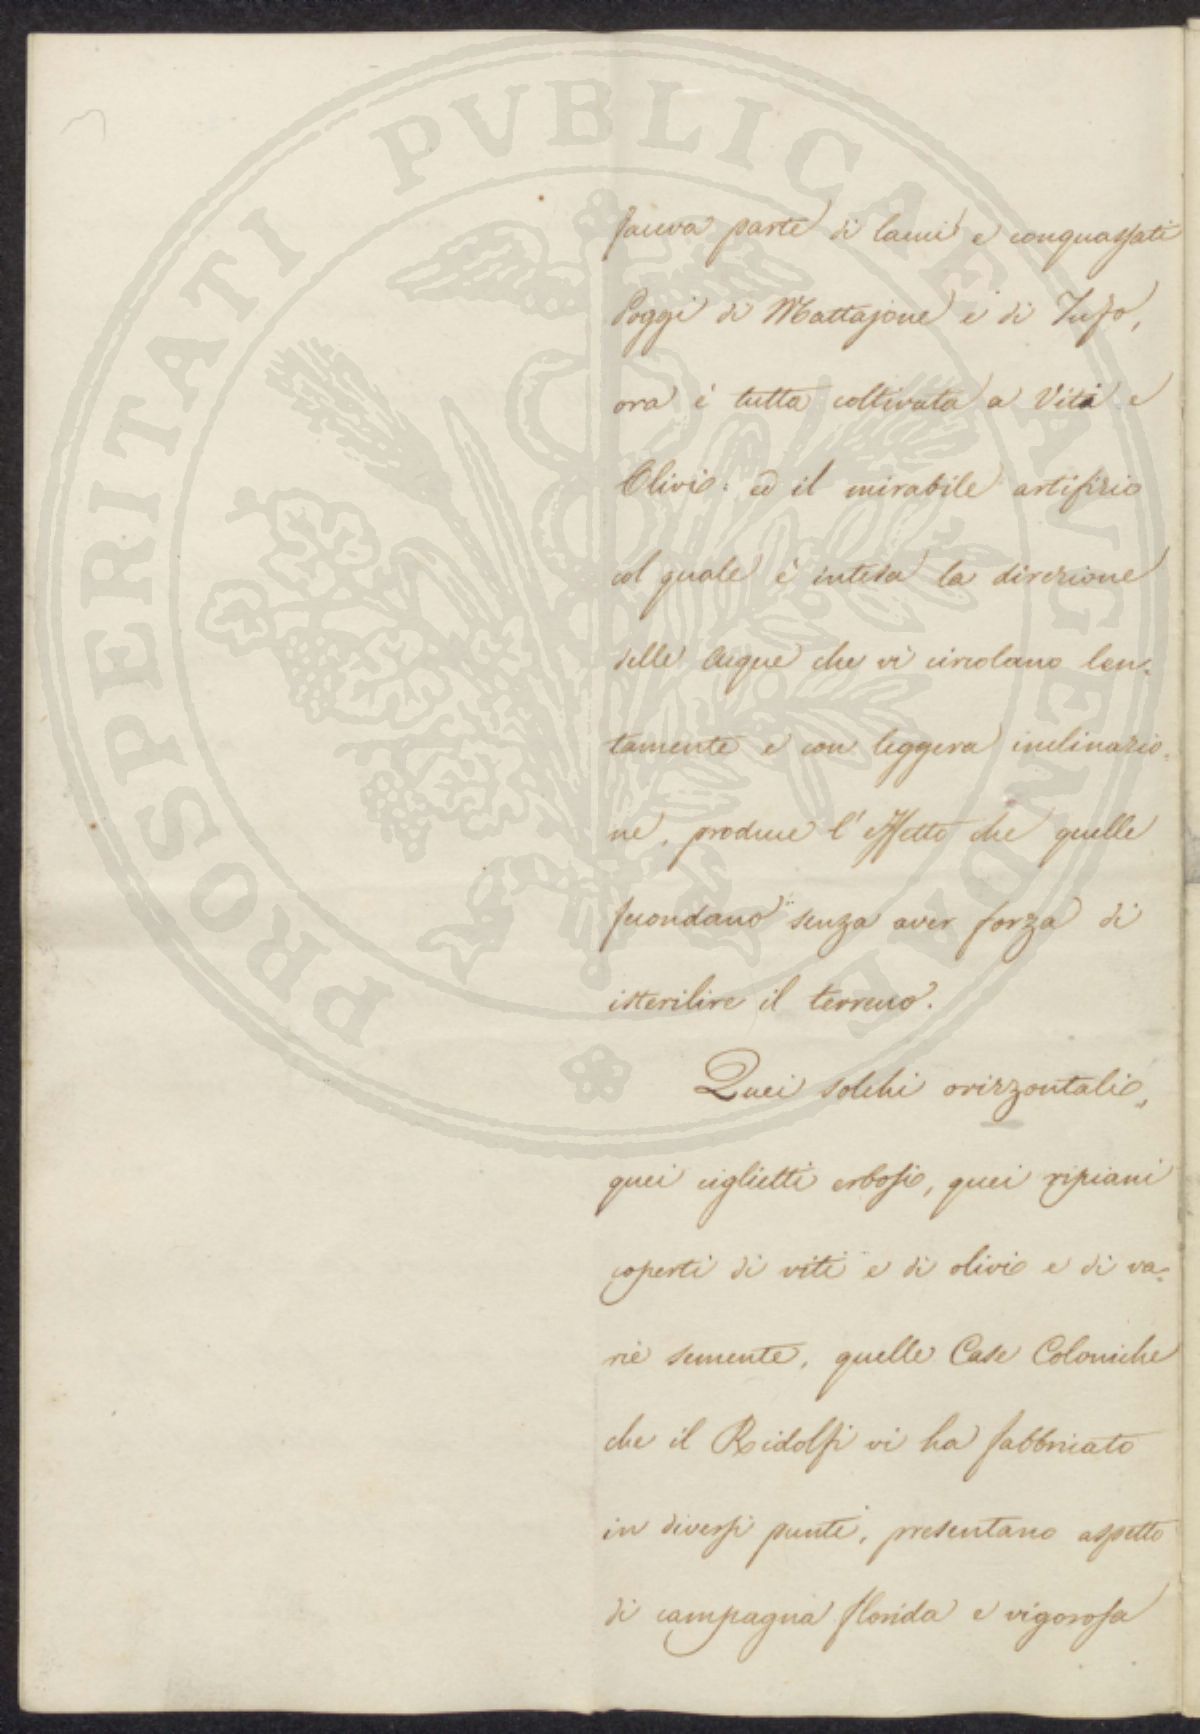 PROSPERITATI PVBLICAE AVGENDAE
faceva parte di lacui e conquassati
Poggi di Mattajone e di Tufo,
ora è tutta coltivata a Viti e
Olivi: ed il mirabile artifizio
col quale è intesa la direzione
delle Acque che vi circolano len-
tamente e con leggera inclinazio-
ne, produce l'effetto che quelle
fecondano senza aver forza di
isterilire il terreno.
Quei solchi orizzontali,
quei ciglietti erbosi, quei ripiani
coperti di viti e di olivi e di va-
rie semente, quelle Case Coloniche
che il Ridolfi vi ha fabbricato
in diversi punti, presentano aspetto
di campagna florida e vigorosa